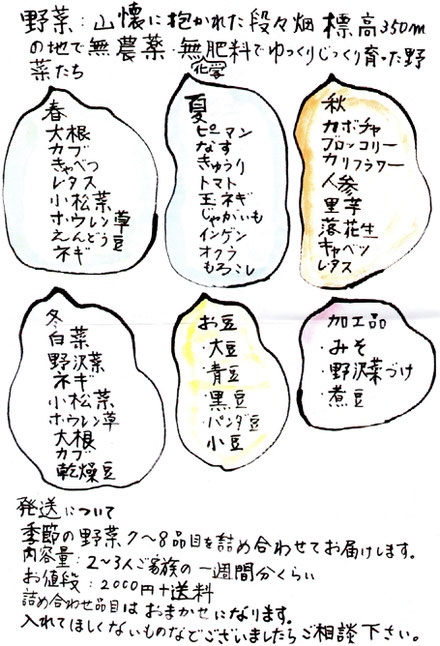 野菜:山懐に抱かれた段々畑 標高350m
の地で無農薬・無化学肥料でゆっくりじっくり育った野
菜たち
春
大根
カブ
きゃべつ
レタス
小松菜
ホウレン草
えんどう豆
ネギ
夏
ピーマン
なす
きゅうり
トマト
玉ネギ
じゃがいも
インゲン
オクラ
もろこし
秋
カボチャ
ブロッコリー
カリフラワー
人参
里芋
落花生
キャベツ
レタス
冬
白菜
野沢菜
ネギ
小松菜
ホウレン草
大根
カブ
乾燥豆
お豆
・大豆
・青豆
・黒豆
・パンダ豆
・小豆
加工品
・みそ
・野沢菜づけ
・煮豆
発送について
季節の野菜7〜8品目を詰め合わせてお届けします。
内容量:2〜3人ご家族の一週間分くらい
お値段:2000円+送料
詰め合わせ品目はおまかせになります。
入れてほしくないものなどございましたらご相談下さい。